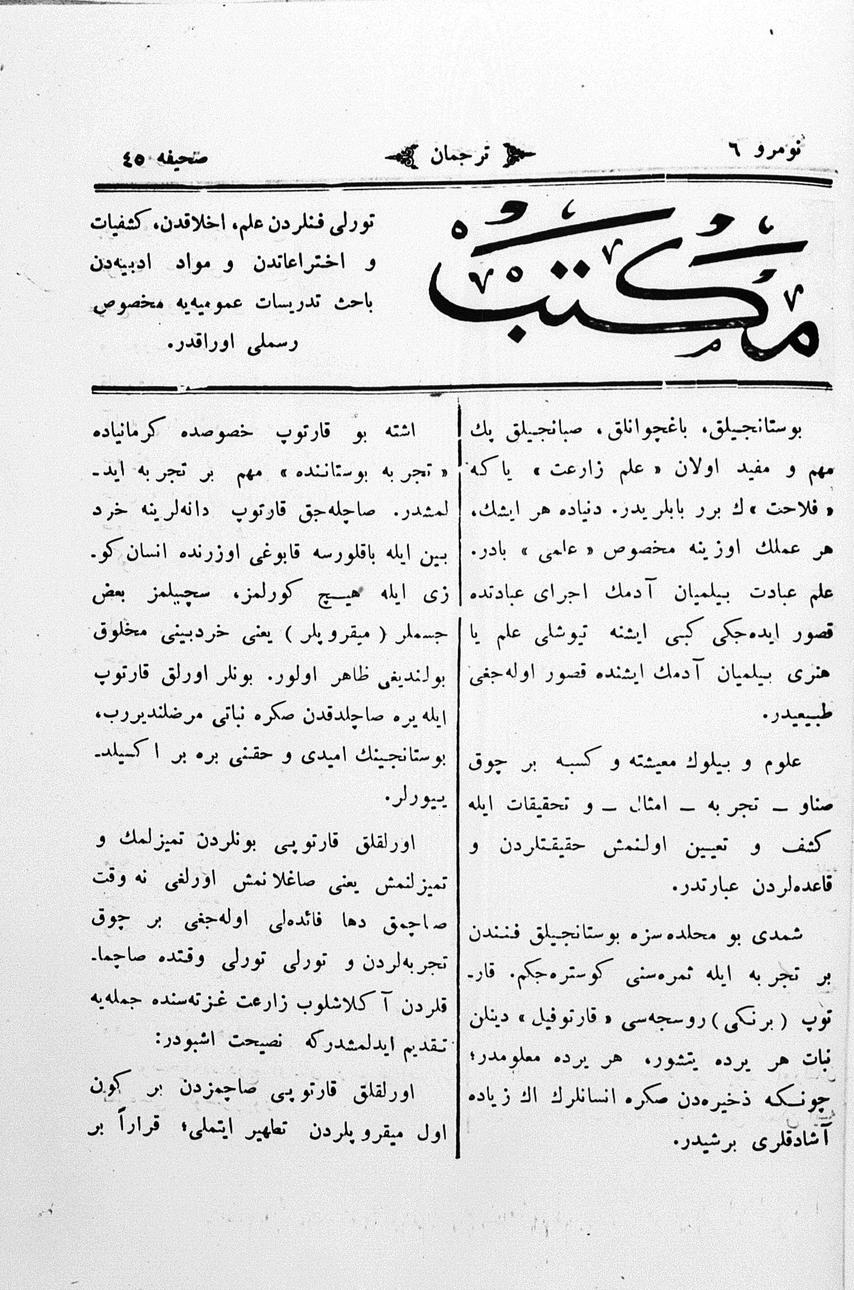 نومرو ٦
ترجمان
صحیفه ٤٥
مكتب
تورلی فنلردن علم، اخلاقدن، كشفیات
و اختراعاتدن و مواد ادبیه‌دن
باحث تدریسات عمومیه‌یه مخصوص
رسملی اوراقدر.
بوستانجیلق، باغچوانلق، صبانجیلق پك
مهم و مفید اولان « علم زارعت » یا كه
« فلاحت »ك برر بابلریدر. دنیاده هر ایشك،
هر عملك اوزینه مخصوص « علمی » بادر.
علم عبادت بیلمیان آدمك اجرای عبادتده
قصور ایده‌جكی كبی ایشنه تیوشلی علم یا
هنری بیلمیان آدمك ایشنده قصور اوله‌جغی
طبیعیدر.
علوم و بیلوك معیشته و كسبه بر چوق
صناو ــ تجربه ــ امثال ــ و تحقیقات ایله
كشف و تعیین اولنمش حقیقتلردن و
قاعده‌لردن عبارتدر.
شمدی بو محلده سزه بوستانجیلق فنندن
بر تجربه ایله ثمره‌سنی كوستره‌جكم. قارـ
توپ (برنكی) روسجه‌سی « قارتوفیل » دینلن
نبات هر یرده یتشور، هر یرده معلومدر؛
چونكه ذخیره‌دن صكره انسانلرك اك زیاده
آشادقلری برشیدر.
اشته بو قارتوپ خصوصده كرمانیاده
« تجربه بوستاننده » مهم بر تجربه ایدـ
لمشدر. صاچله‌جق قارتوپ دانه‌لرینه خرد
بین ایله باقلورسه قابوغی اوزرنده انسان كوـ
زی ایله هیچ كورلمز، سچیلمز بعض
جسملر ( میقروپلر ) یعنی خردبینی مخلوق
بولندیغی ظاهر اولور. بونلر اورلق قارتوپ
ایله یره صاچلدقدن صكره نباتی مرضلندیررب،
بوستانجینك امیدی و حقنی بره بر اكسیلدـ
یپورلر.
اورلقلق قارتوپی بونلردن تمیزلمك و
تمیزلنمش یعنی صاغلانمش اورلغی نه وقت
صاچمق دها فائده‌لی اوله‌جغی بر چوق
تجربه‌لردن و تورلی تورلی وقتده صاچماـ
قلردن آكلاشلوب زارعت غزته‌سنده جمله‌یه
تقدیم ایدلمشدركه نصیحت اشبودر:
اورلقلق قارتوپی صاچمزدن بر كون
اول میقروپلردن تطهیر ایتملی؛ قراراً بر